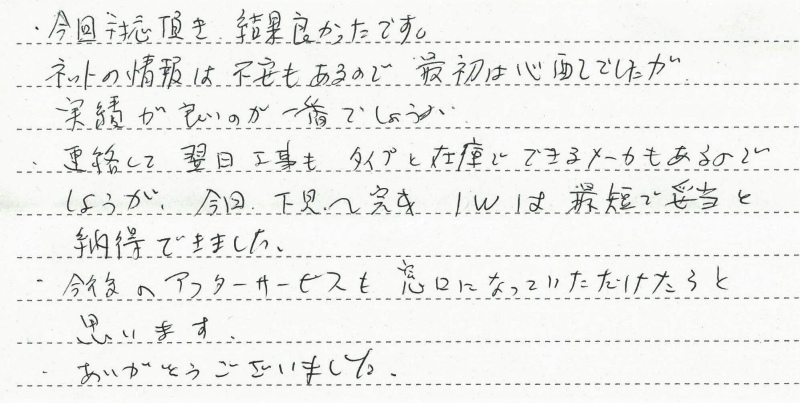 ・今回対応頂き 結果良かったです。
ネットの情報は不安もあるので 最初は心配でしたが
実績が良いのが一番でしょうか
・連絡して翌日工事も タイプと在庫でできるメーカもあるので
しょうが、今回、下見へ完了 1Wは最短で妥当と
納得できました。
・今後のアフターサービスも窓口になっていただけたらと
思います。
・ありがとうございました。